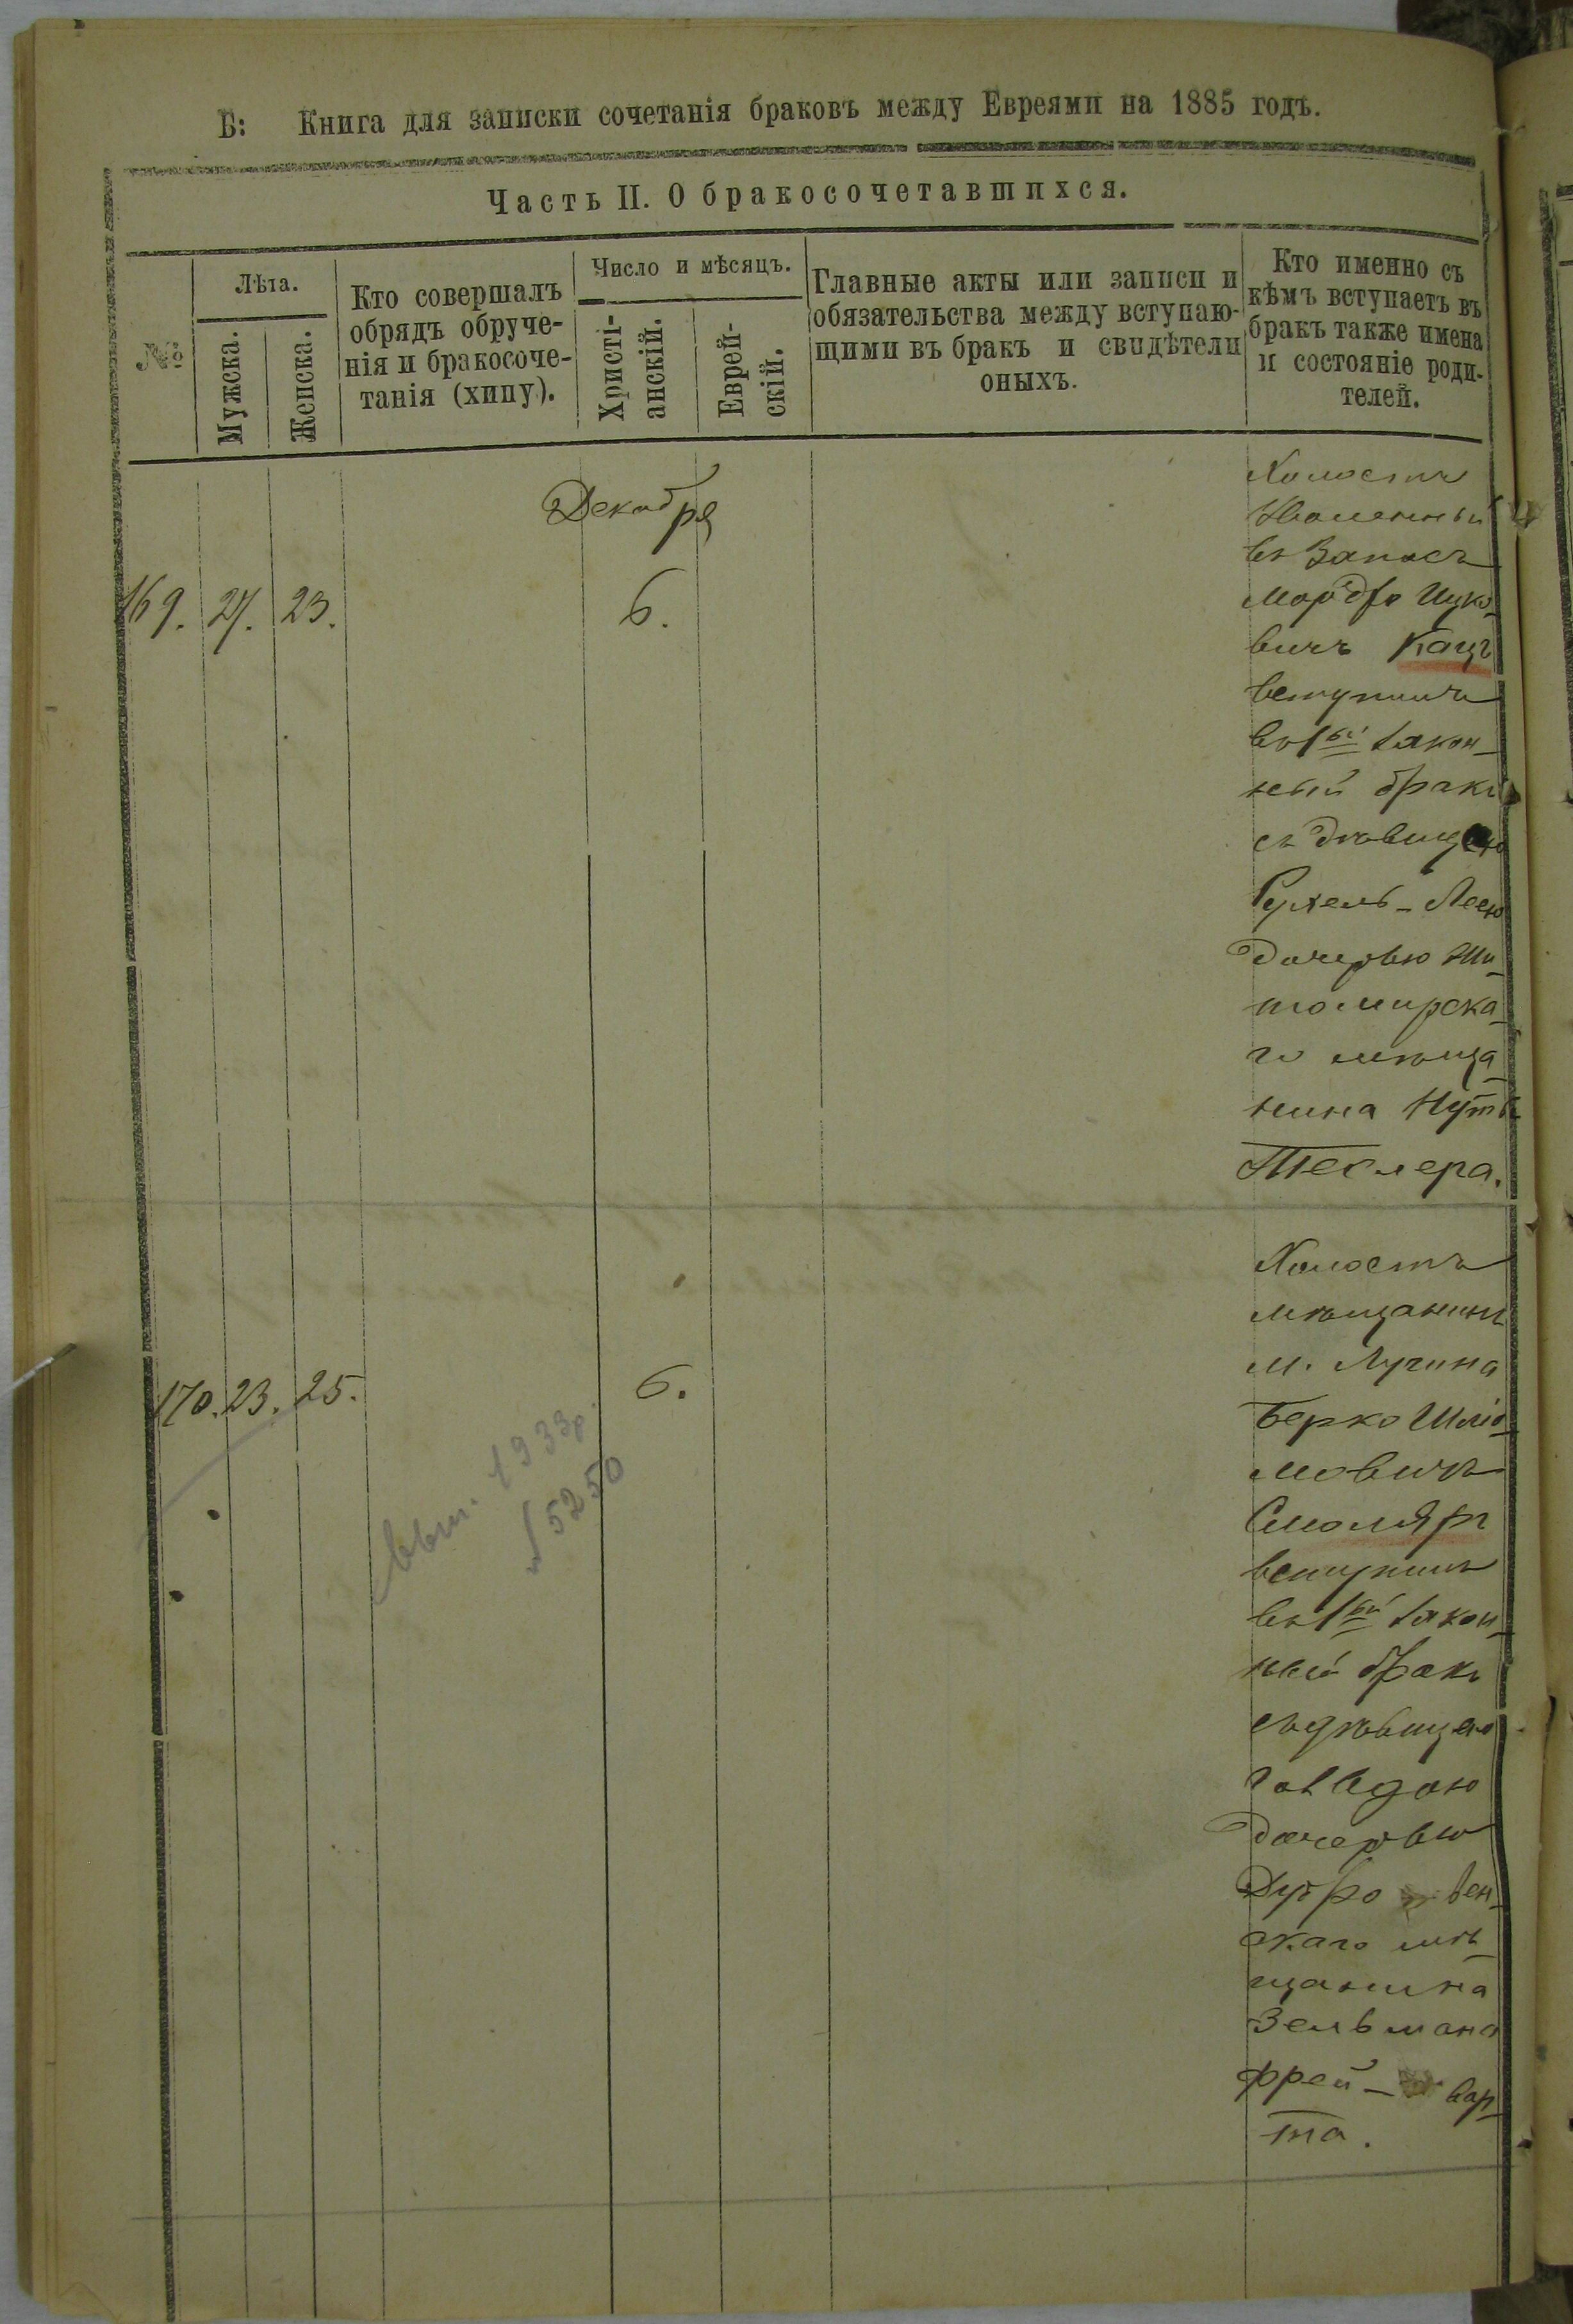 Б: Книга для записки сочетанія браковъ между Евреями на 1885 годъ.
Часть II. О бракосочетавшихся.
№
Лѣта.
Мужска.
Женска.
Кто совершалъ
обрядъ обруче-
нія и бракосоче-
танія (хипу).
Число и мѣсяцъ.
Христі-
анскій.
Еврей-
скій.
Главные акты или записи и
обязательства между вступаю-
щими въ бракъ и свидѣтели
оныхъ.
Кто именно съ
кѣмъ вступаетъ въ
бракъ также имена
и состояніе роди-
телей.
Декабря
169. 27. 23. 6.
Холостъ
въ Запасъ
Мордко Ицко-
вичъ Кацъ
вступилъ
въ 1ый закон-
ный бракъ
съ дѣвицею
Рухель-Леею
дочерью Жи-
томирска-
го мѣща-
нина
Теслера.
170. 23. 25. 6.
Холостъ
мѣщанинъ
м. Лугина
Берко Шліо-
мовичъ
Смоляръ
вступилъ
въ 1ый закон-
ный бракъ
съ дѣвицею
дочерью
Дубро вен-
скаго мѣ-
щанина
Зельмана
Фрей- вар-
та.
1933р.
5250